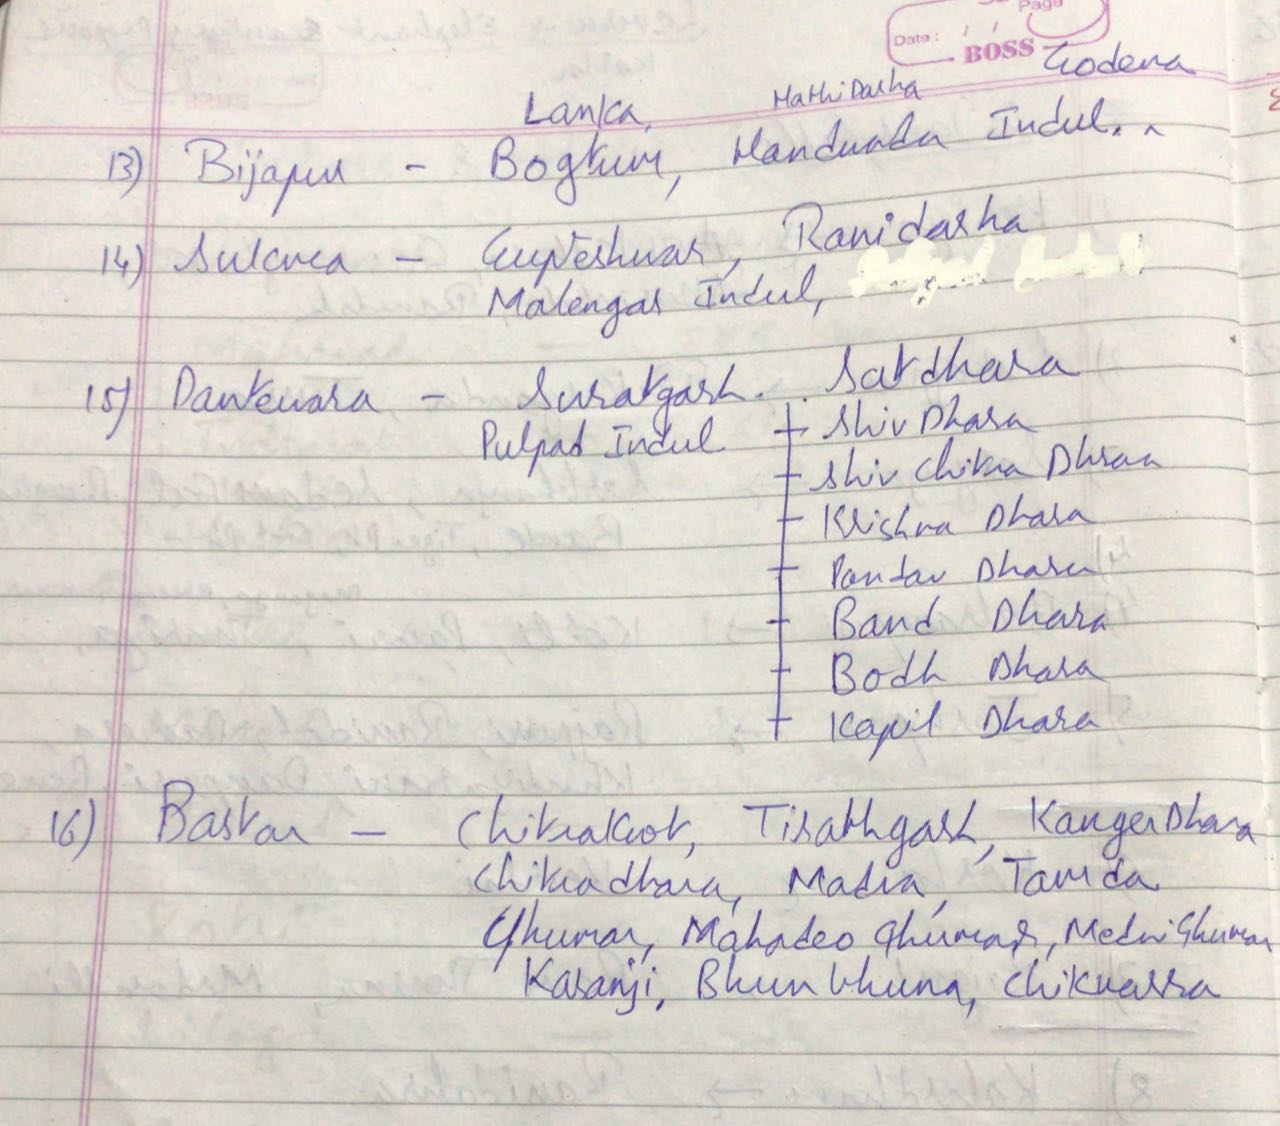 Page
Date : / /
BOSS
Godena
Lanka, HathiDarha
13) Bijapur - Bogtum, Nandwada Indul.
14) Sukma - Gupteshwar, Ranidarha
Malengar Indul,
15) Dantewara - Suratgarh. Satdhara
Pulpad Indul
Shiv Dhara
Shiv Chitra Dhraa
Krishna Dhara
Pandav Dhara
Band Dhara
Bodh Dhara
Kapil Dhara
16) Bastar - Chitrakoot, Tirathgarh, Kanger Dhara
Chitradhara, Madra, Tamda
Ghumar, Mahadeo Ghumar, Medri Ghumar
Karanji, Bhun bhuna, Chiknarra